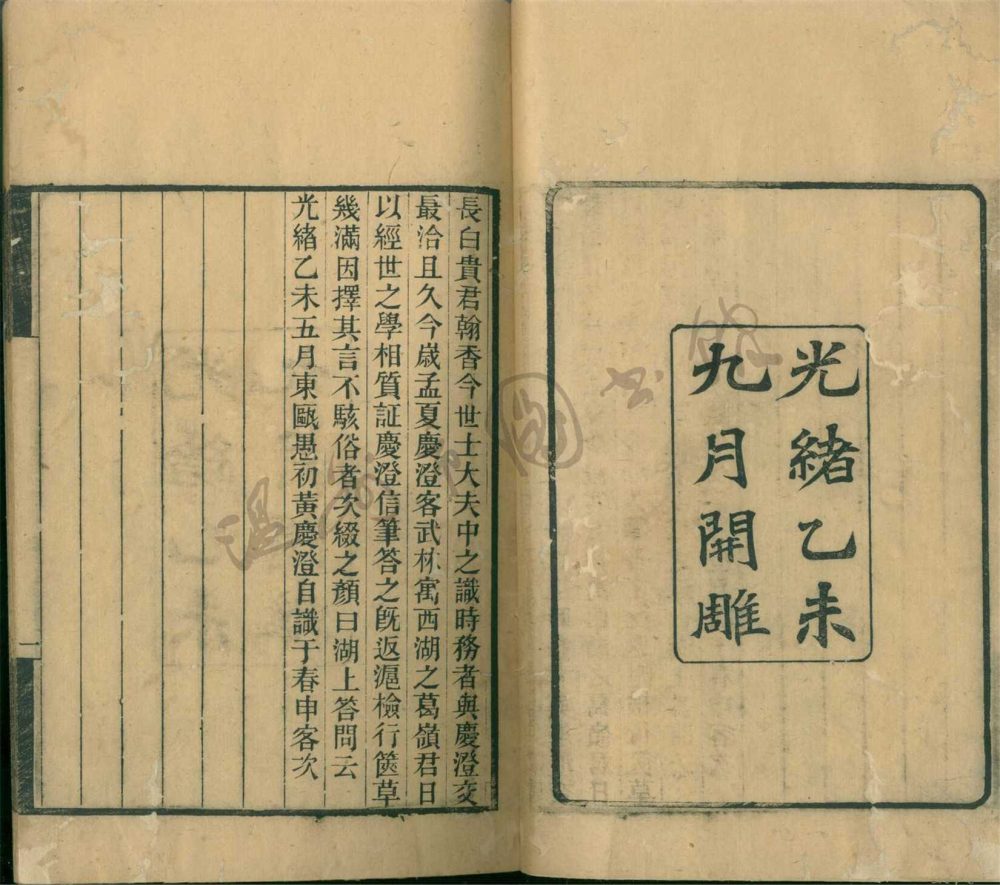 光緒乙未
九月開雕
長白貴君翰香今世士大夫中之識時務者與慶澄交
最洽且久今歲孟夏慶澄客武林寓西湖之葛嶺君日
以經世之學相質証慶澄信筆答之旣返滬檢行篋草
幾滿因擇其言不駭俗者次綴之顏曰湖上答問云
光緒乙未五月東甌愚初黃慶澄自識于春申客次